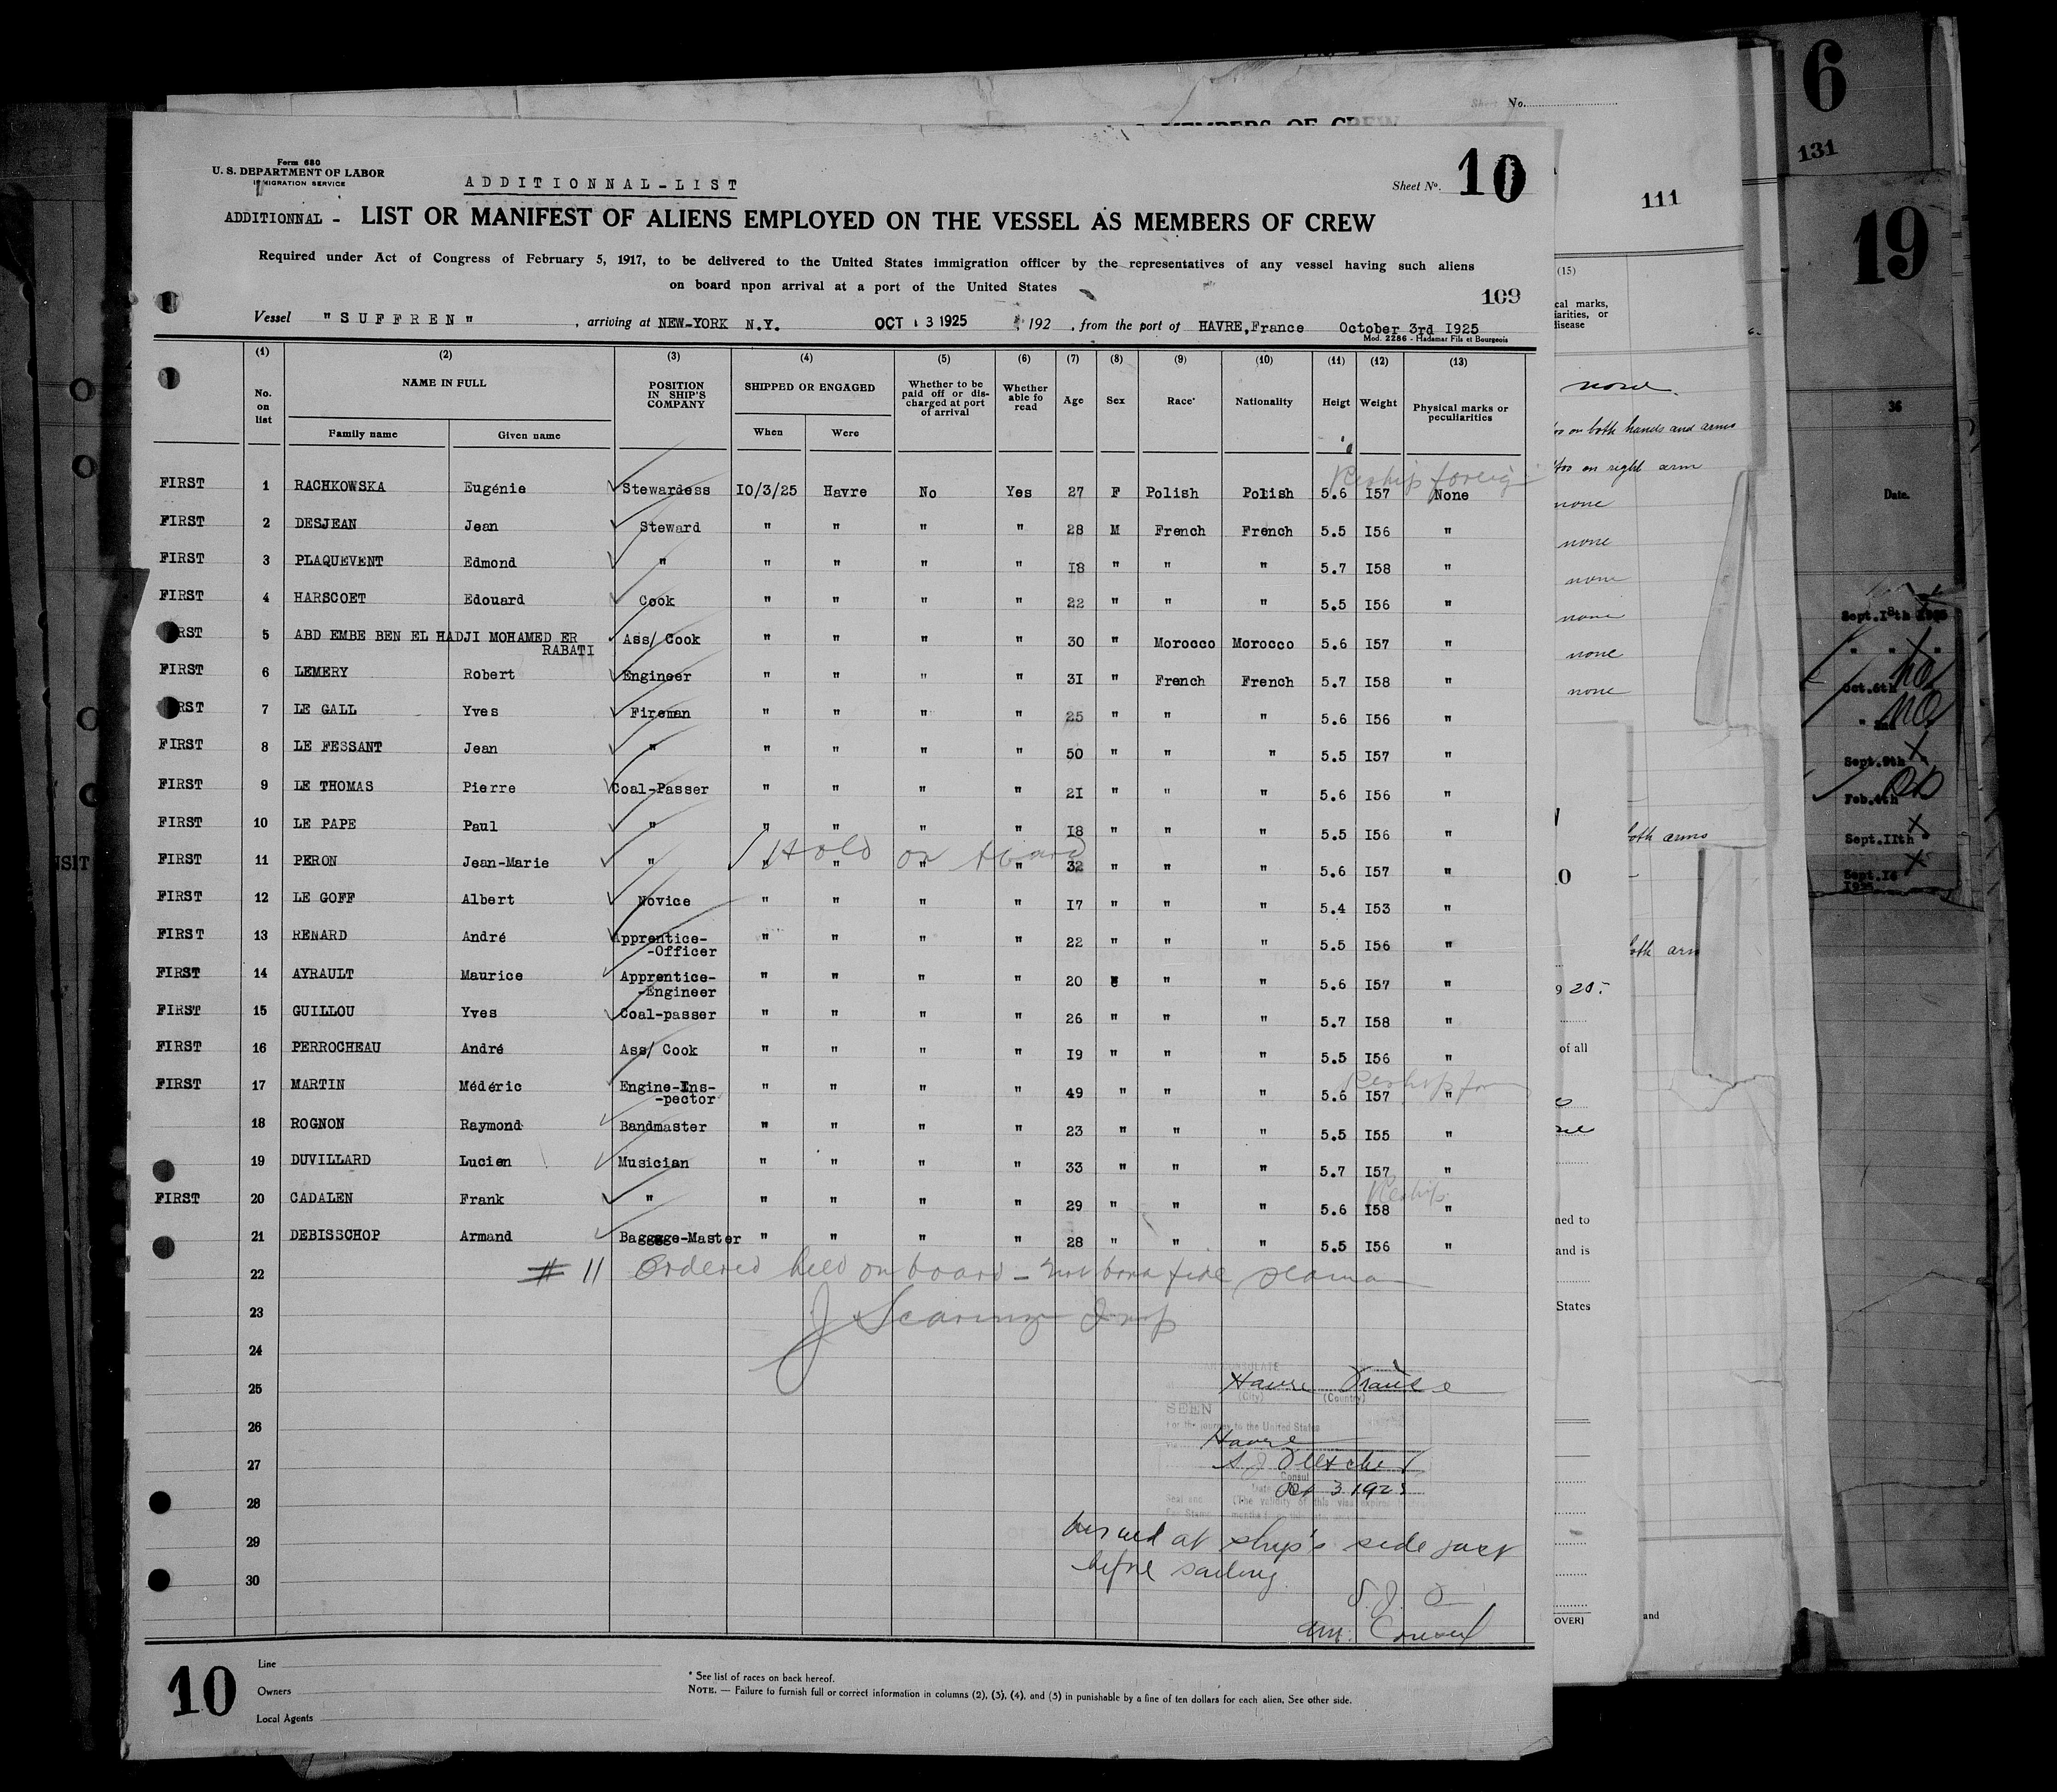 Form 680
U. S. DEPARTMENT OF LABOR
IMMIGRATION SERVICE
ADDITIONNAL-LIST
Sheet No. 10
ADDITIONNAL - LIST OR MANIFEST OF ALIENS EMPLOYED ON THE VESSEL AS MEMBERS OF CREW
Required under Act of Congress of February 5, 1917, to be delivered to the United States immigration officer by the representatives of any vessel having such aliens
on board npon arrival at a port of the United States
109
Vessel "SUFFREN" , arriving at NEW-YORK N.Y. OCT 13 1925 192 , from the port of HAVRE,France October 3rd I925
Mod. 2286 - Hadamar Fils et Bourgeois
(1) (2) (3) (4) (5) (6) (7) (8) (9) (10) (11) (12) (13)
No. on list NAME IN FULL Family name Given name POSITION IN SHIP'S COMPANY SHIPPED OR ENGAGED When Were Whether to be paid off or discharged at port of arrival Whether able to read Age Sex Race* Nationality Heigt Weight Physical marks or peculiarities
Reship foreign
FIRST 1 RACHKOWSKA Eugénie Stewardess I0/3/25 Havre No Yes 27 F Polish Polish 5.6 I57 None
FIRST 2 DESJEAN Jean Steward " " " " 28 M French French 5.5 I56 "
FIRST 3 PLAQUEVENT Edmond " " " " " I8 " " " 5.7 I58 "
FIRST 4 HARSCOET Edouard Cook " " " " 22 " " " 5.5 I56 "
FIRST 5 ABD EMBE BEN EL HADJI MOHAMED ER RABATI Ass/ Cook " " " " 30 " Morocco Morocco 5.6 I57 "
FIRST 6 LEMERY Robert Engineer " " " " 3I " French French 5.7 I58 "
FIRST 7 LE GALL Yves Fireman " " " " 25 " " " 5.6 I56 "
FIRST 8 LE FESSANT Jean " " " " " 50 " " " 5.5 I57 "
FIRST 9 LE THOMAS Pierre Coal-Passer " " " " 2I " " " 5.6 I56 "
FIRST 10 LE PAPE Paul " " " " " I8 " " " 5.5 I56 "
Hold on board
FIRST 11 PERON Jean-Marie " " " " " 32 " " " 5.6 I57 "
FIRST 12 LE GOFF Albert Novice " " " " I7 " " " 5.4 I53 "
FIRST 13 RENARD André Apprentice-
-Officer " " " " 22 " " " 5.5 I56 "
FIRST 14 AYRAULT Maurice Apprentice-
-Engineer " " " " 20 " " " 5.6 I57 "
FIRST 15 GUILLOU Yves Coal-passer " " " " 26 " " " 5.7 I58 "
FIRST 16 PERROCHEAU André Ass/ Cook " " " " I9 " " " 5.5 I56 "
FIRST 17 MARTIN Médéric Engine-Ins-
-pector " " " " 49 " " " 5.6 I57 "
18 ROGNON Raymond Bandmaster " " " " 23 " " " 5.5 I55 "
19 DUVILLARD Lucien Musician " " " " 33 " " " 5.7 I57 "
Reship
FIRST 20 CADALEN Frank " " " " " 29 " " " 5.6 I58 "
21 DEBISSCHOP Armand Baggage-Master " " " " 28 " " " 5.5 I56 "
22 # 11 Ordered held on board - not bona fide seaman
23 Insp
24
25 Havre France
(City) (Country)
SEEN
26 For the journey to the United States
Havre
27
Consul
Oct 3 1925
28
29 at ship's side just
30 before sailing
Am. Consul
10
Line
Owners
Local Agents
* See list of races on back hereof.
NOTE. — Failure to furnish full or correct information in columns (2), (3), (4), and (5) in punishable by a fine of ten dollars for each alien, See other side.
No.
111
(15)
none
on both hands and arms
on right arm
none
none
none
none
none
none
both arms
both arm
of all
and is
States
OVER)
and
6
131
19
36
Date.
Oct.6th
Sept.9th
Feb.4th
Sept.11th
Sept.16